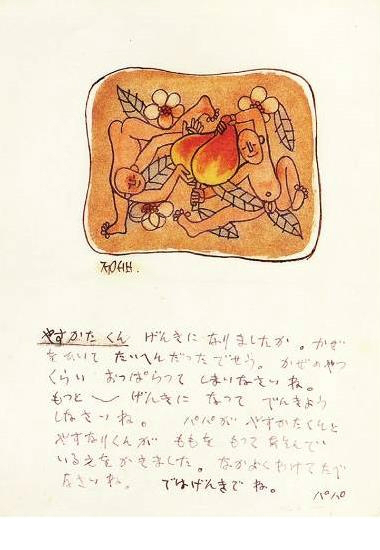 やすかたくん げんきに なりましたか。かぜ
をひいて たいへんだったでせう。かぜのやつ
くらい おっぱらって しまいなさいね。
もっと〜 げんきに なって べんきょう
しなさいね。 パパが やすかたくんと
やすなりくんが ももを もって あそんで
いるえをかきました。なかよくわけてたべ
なさいね。 ではげんきで ね。
パパ